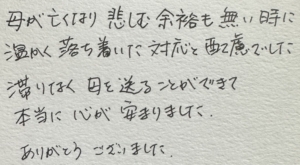 母が亡くなり 悲しむ余裕も無い時に
温かく落ち着いた対応と配慮でした
滞りなく母を送ることができて
本当に心が安まりました.
ありがとうございました.